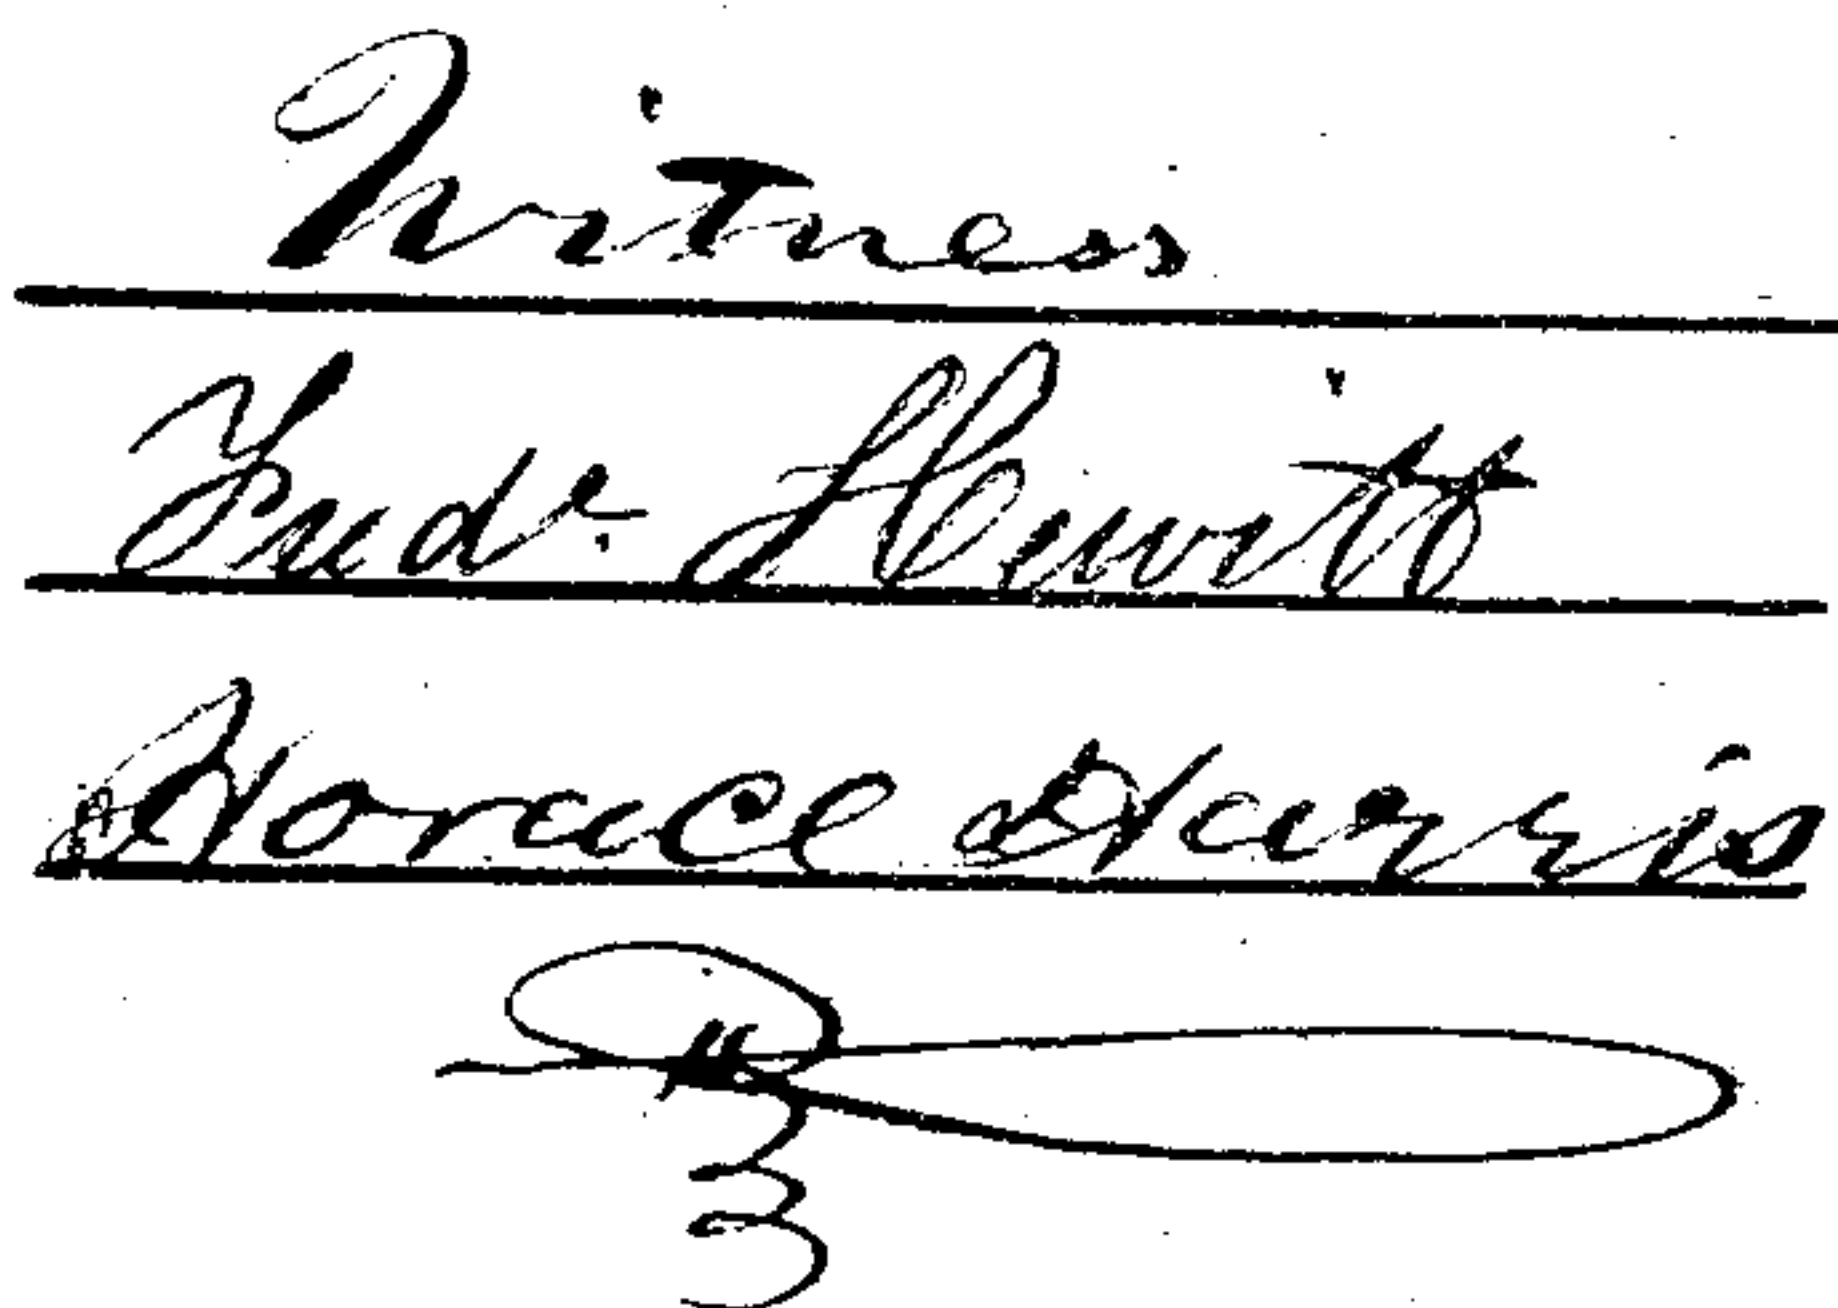 Witness
Fredk. Hewitt
Horace Harris